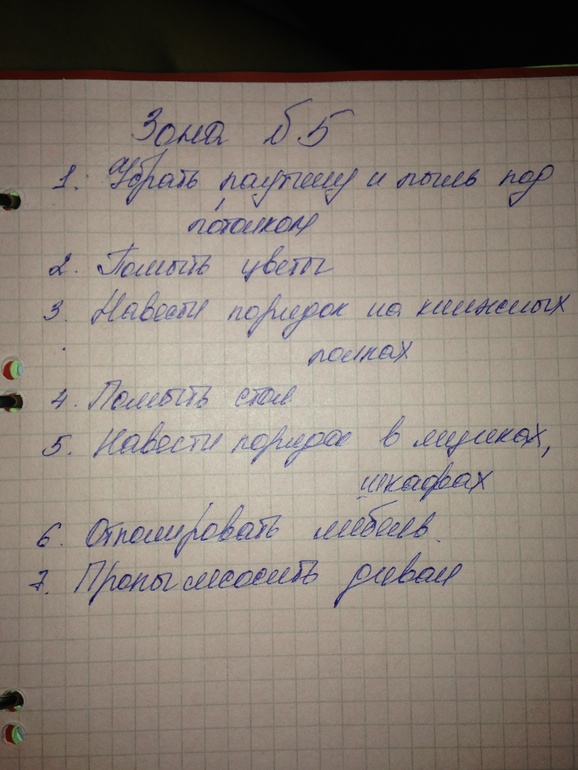 Зона № 5
1. Убрать паутину и пыль под
потолком
2. Помыть цветы
3. Навести порядок на книжных
полках
4. Помыть стол
5. Навести порядок в ящиках,
шкафах
6. Отполировать мебель.
7. Пропылесосить диван